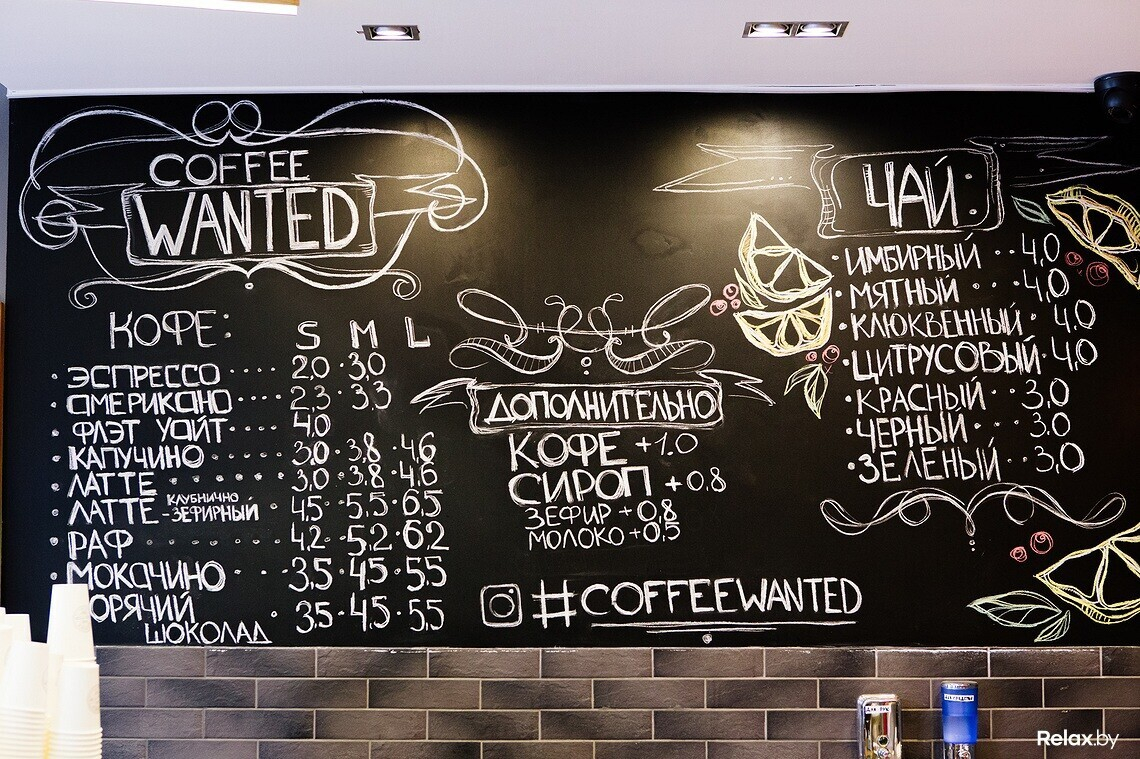 COFFEE
WANTED
КОФЕ:
S M L
ЭСПРЕССО 2,0 3,0
АМЕРИКАНО 2,3 3,3
ФЛЭТ УАЙТ 4,0
КАПУЧИНО 3,0 3,8 4,6
ЛАТТЕ 3,0 3,8 4,6
ЛАТТЕ КЛУБНИЧНО-ЗЕФИРНЫЙ 4,5 5,5 6,5
РАФ 4,2 5,2 6,2
МОКАЧИНО 3,5 4,5 5,5
ГОРЯЧИЙ
ШОКОЛАД 3,5 4,5 5,5
ДОПОЛНИТЕЛЬНО
КОФЕ +1.0
СИРОП +0,8
ЗЕФИР +0,8
МОЛОКО +0,5
#COFFEEWANTED
ЧАЙ
ИМБИРНЫЙ 4,0
МЯТНЫЙ 4,0
КЛЮКВЕННЫЙ 4,0
ЦИТРУСОВЫЙ 4,0
КРАСНЫЙ 3,0
ЧЕРНЫЙ 3.0
ЗЕЛЕНЫЙ 3,0
Relax.by